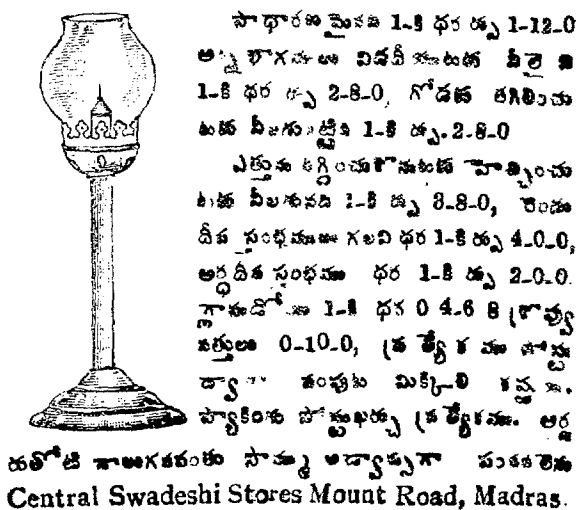 సాధారణ మైనది 1-కి ధర రు 1-12-0
అన్ని భాగములు విడదీయుటకు వీలైన
1-కి ధర రు 2-8-0, గోడకు తగిలించు
టకు వీలగునట్టిది 1-కి రు. 2-8-0
ఎత్తును తగ్గించుకొనుటకు హెచ్చించు
టకు వీలగునది 1-కి రు 3-8-0, రెండు
దీప స్తంభములు గలవి ధర 1-కి రు 4-0-0,
అర్ధ దీప స్తంభము ధర 1-కి రు 2-0-0.
1-కి ధర 0 4-6 8 క్రొవ్వు
వత్తులు 0-10-0, ప్రత్యేకముగా పోస్టు
ద్వారా పంపుట మిక్కిలి కష్టము.
ప్యాకింగు పోస్టుఖర్చు ప్రత్యేకము. ఆర్డ
రుతోటి నాలుగవవంతు సొమ్ము అడ్వాన్సుగా పంపవలెను
Central Swadeshi Stores Mount Road, Madras.